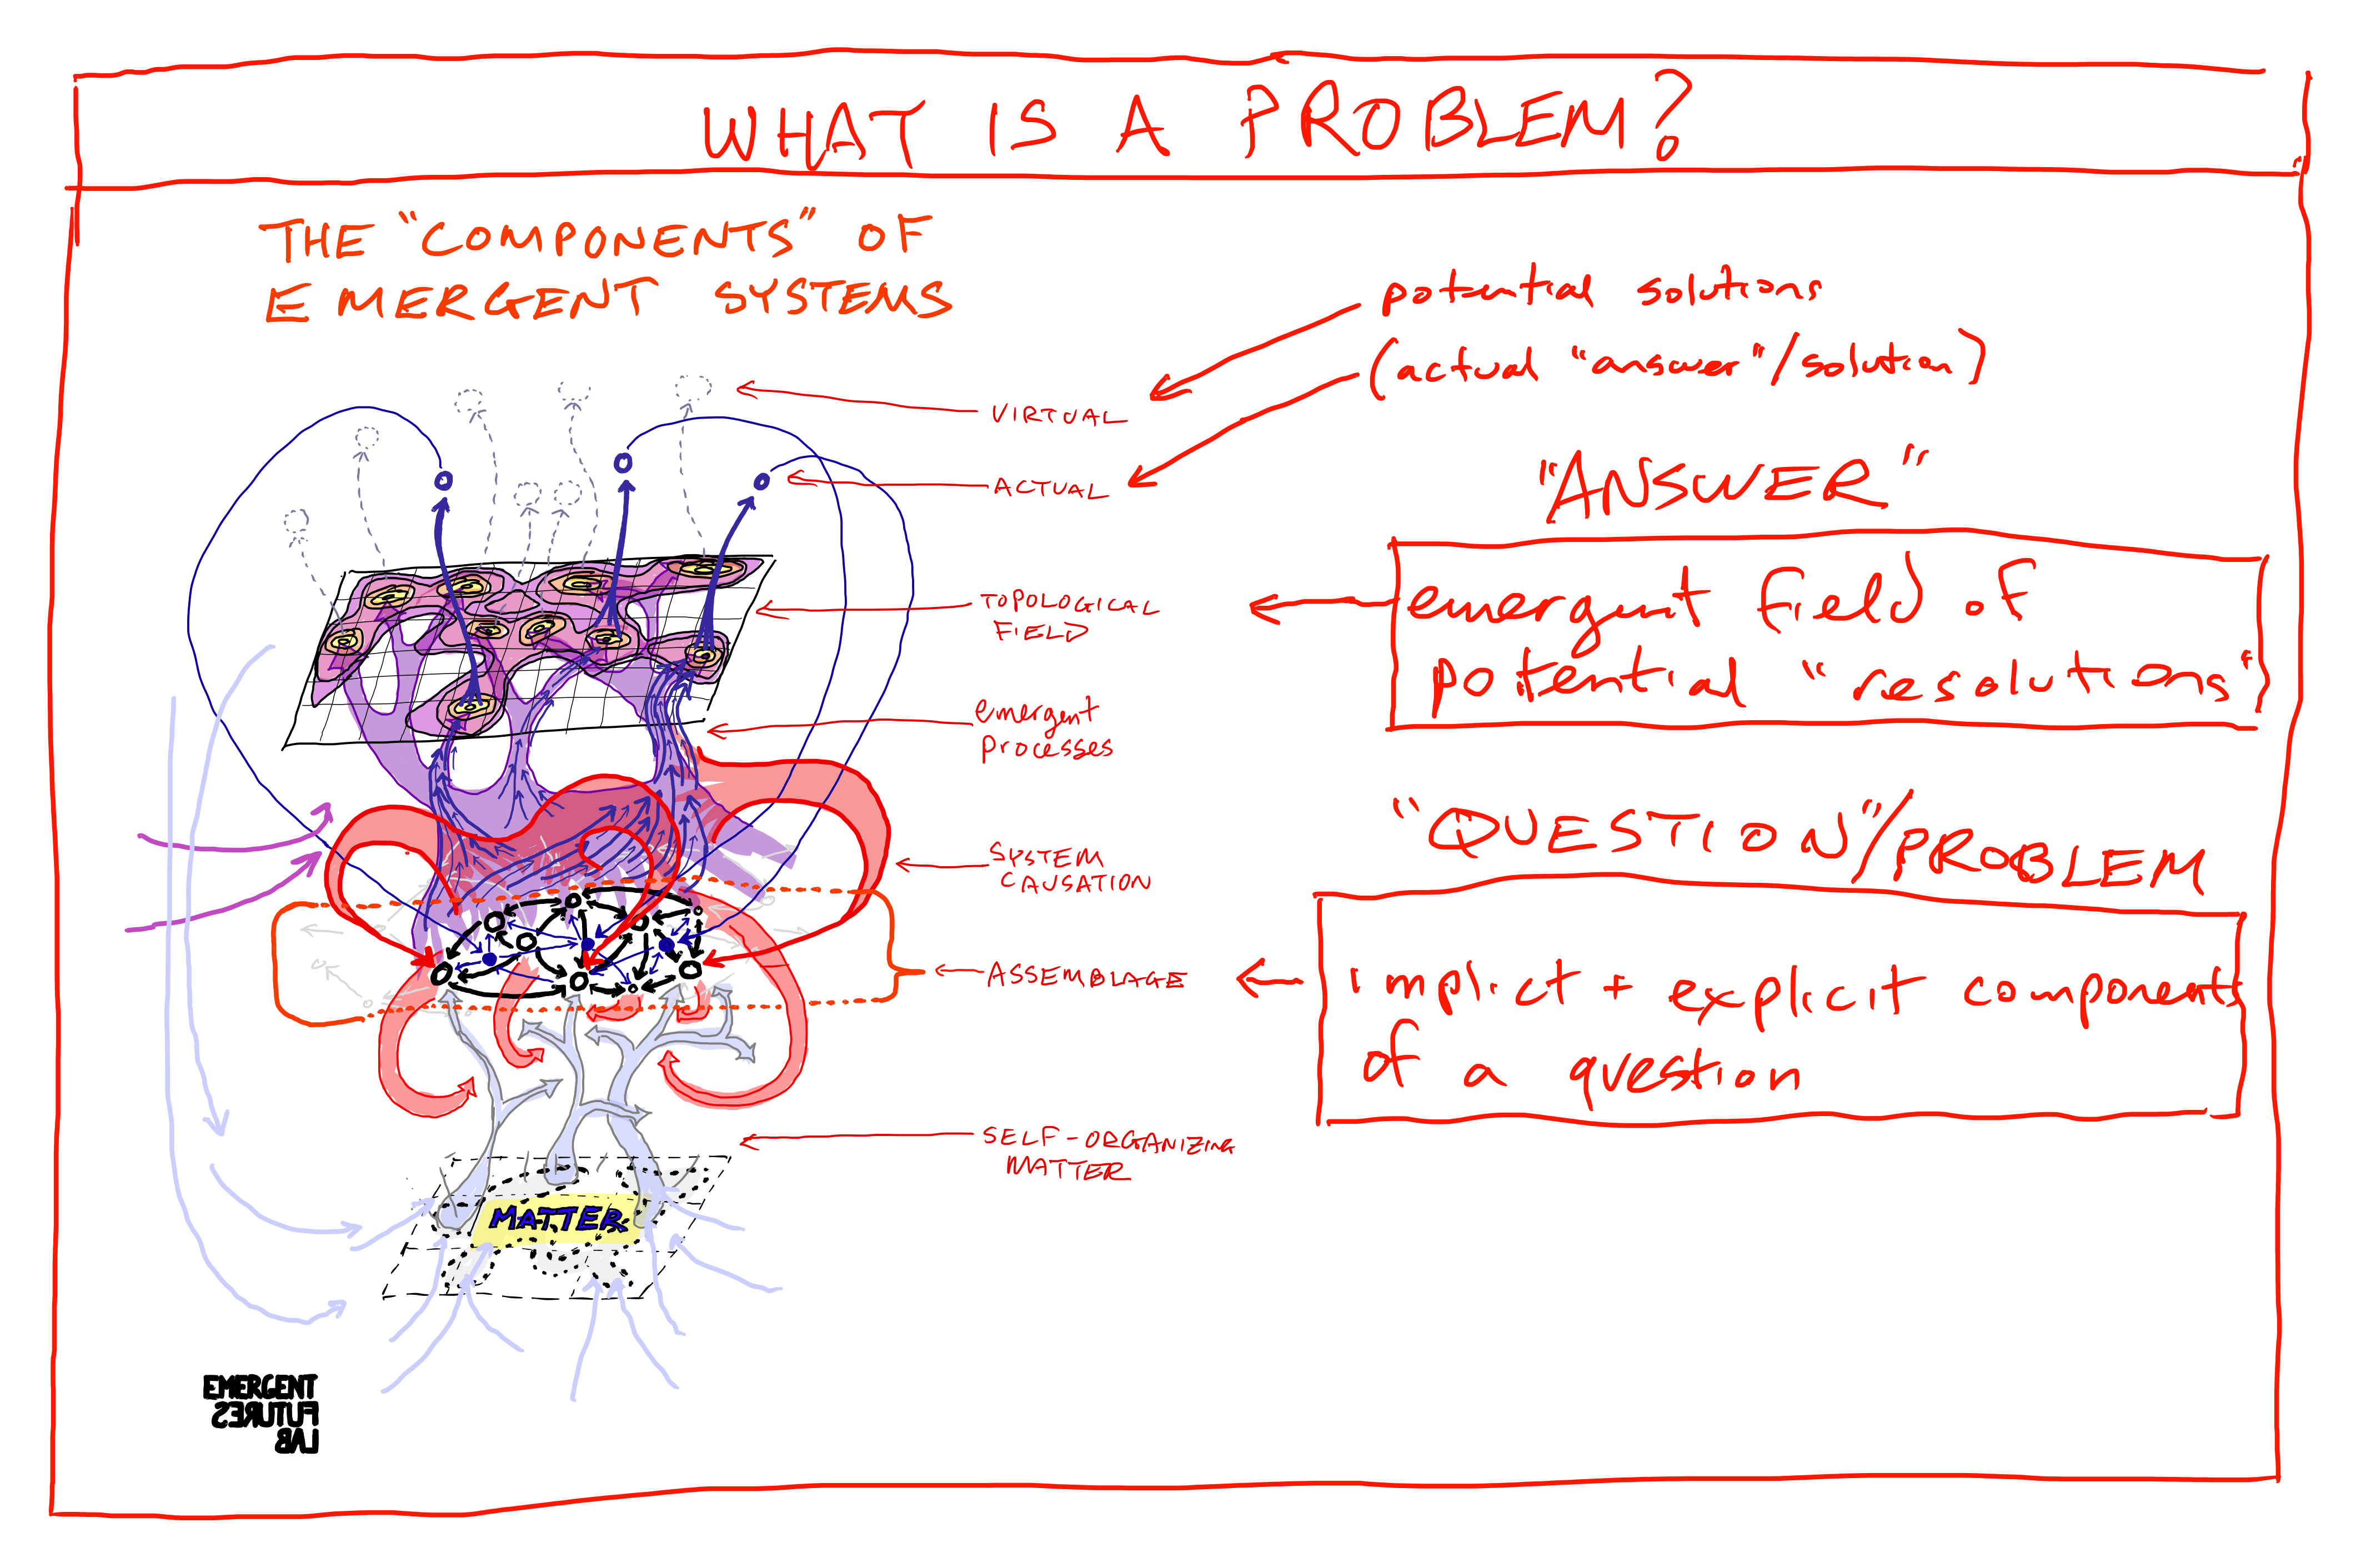 WHAT IS A PROBLEM?
THE "COMPONENTS" OF
EMERGENT SYSTEMS
potential solutions
(actual "answer"/solution)
VIRTUAL
ACTUAL
"ANSWER"
emergent field of
potential "resolutions"
TOPOLOGICAL
FIELD
emergent
processes
"QUESTION"/PROBLEM
SYSTEM
CAUSATION
ASSEMBLAGE
implict + explicit components
of a question
SELF-ORGANIZING
MATTER
MATTER
EMERGENT
FUTURES
LAB